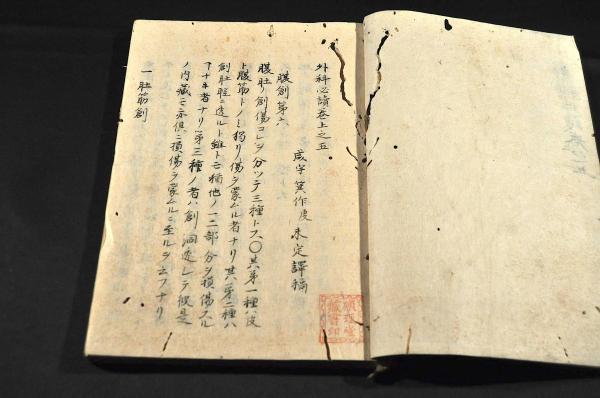 外科必讀卷上之五
咸宇箕作虔未定譯稿
腹創第六
腹肚ノ創傷コレヲ分ツテ三種トス〇其第一種ハ皮
ト腹筋トノミ獨リ傷ヲ蒙ムル者ナリ其第二種ハ
創肚腔ニ達ルト雖トモ猶他ノ一二部分ヲ損傷スル
者ナリ第三種ノ者ハ創洞達シテ彼是
ノ内臓モ亦倶ニ損傷ヲ蒙ムルニ至ルヲ云フナリ
一肚筋創